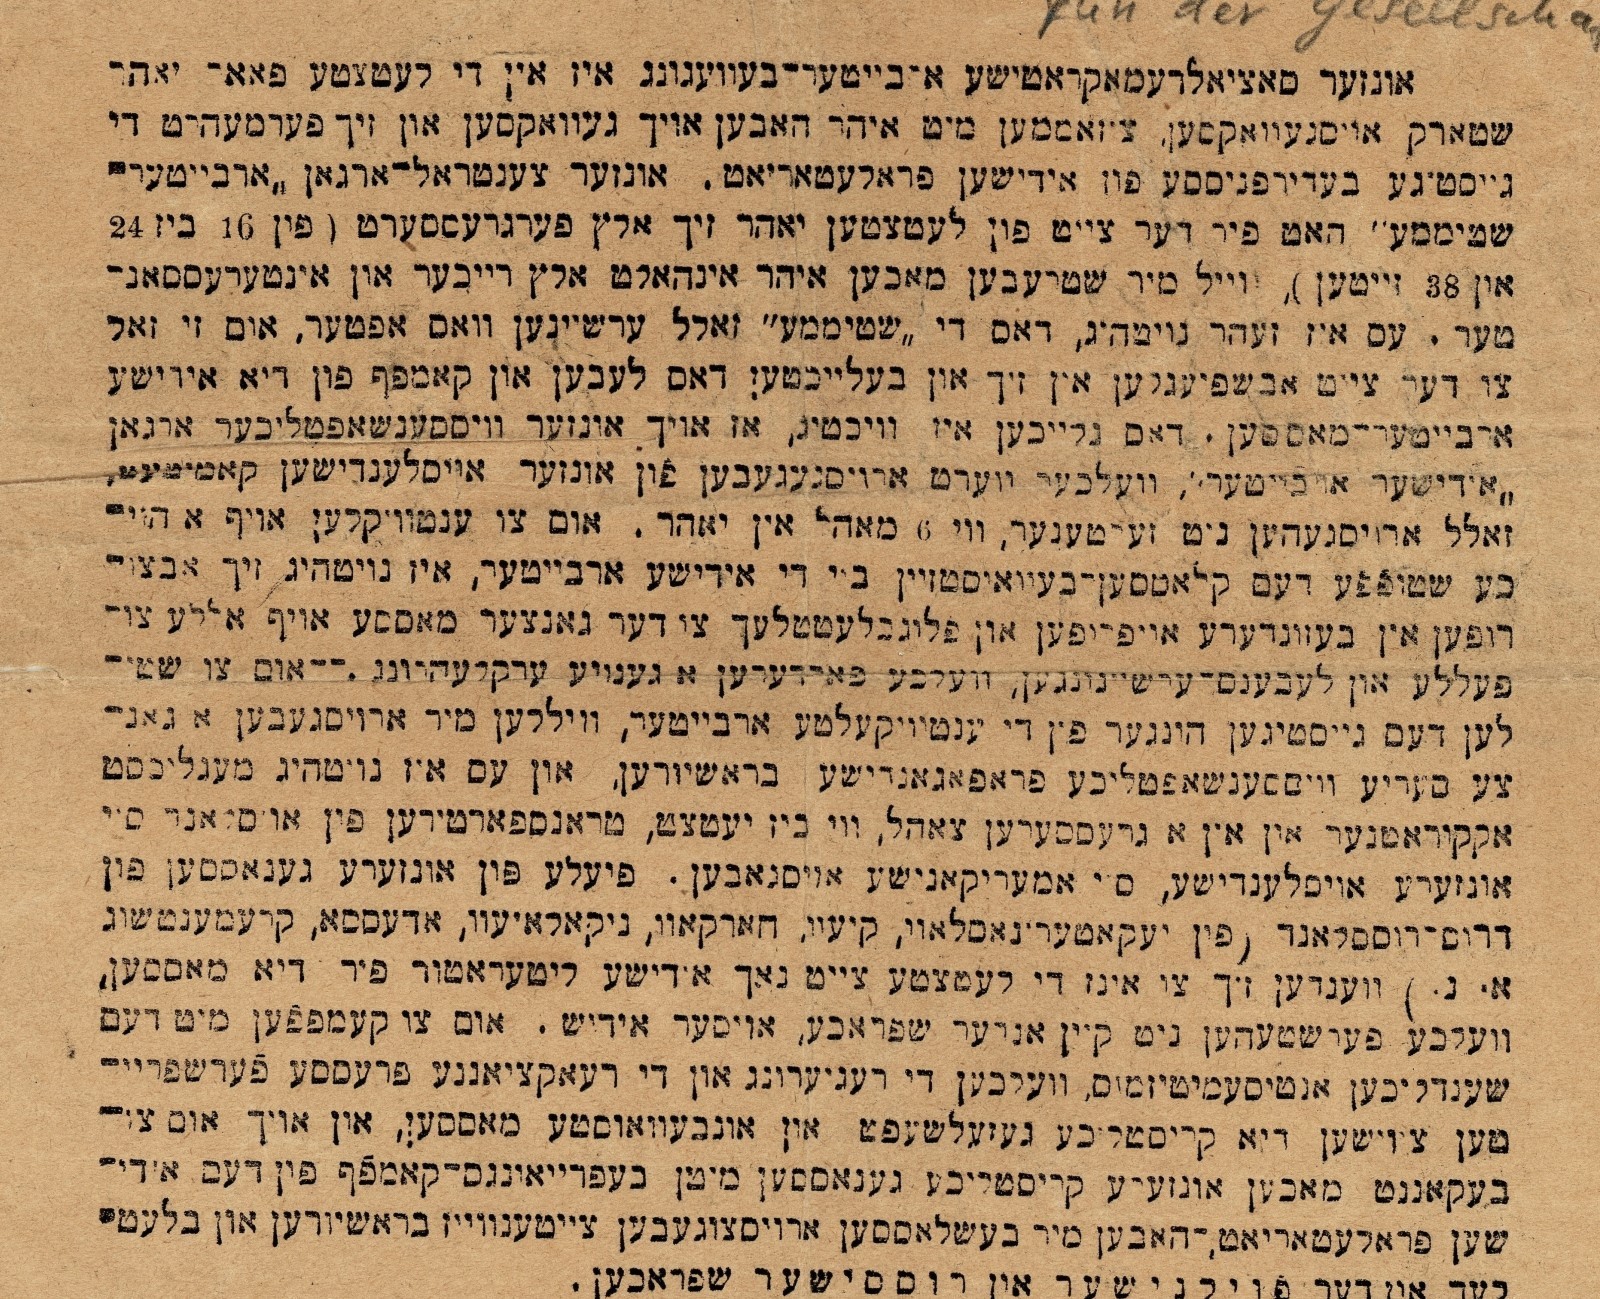 fun der Gesellscha
אונזער סאציאלדעמאקראטישע א־בייטער־בעוועגונג איז אין די לעטצטע פאאר יאהר
שטארק אויסגעוואקסען, צוזאממען מיט איהר האבען אויך געוואקסען און זיך פערמעהרט די
גייסטיגע בעדירפניססע פון אידישען פראלעטאריאט. אונזער צענטראל־ארגאן „ארבייטער־
שטיממע״ האט פיר דער צייט פון לעטצטען יאהר זיך אלץ פערגרעססערט (פון 16 ביז 24
און 38 זייטען), ווייל מיר שטרעבען מאכען איהר אינהאלט אלץ רייכער און אינטערעססאנ־
טער. עס איז זעהר נויטהיג, דאס די „שטיממע״ זאלל ערשיינען וואס אפטער, אום זי זאל
צו דער צייט אבשפיעגלען אין זיך און בעלייכטען דאס לעבען און קאמפף פון דיא אידישע
ארבייטער־מאססען. דאס גלייכען איז וויכטיג, אז אויך אונזער וויססענשאפטליכער ארגאן
„אידישער ארבייטער״, וועלכער ווערט ארויסגעגעבען פון אונזער אויסלענדישען קאמיטעט,
זאלל ארויסגעהען ניט זעלטענער, ווי 6 מאהל אין יאהר. אום צו ענטוויקלען אויף א הוי־
כע שטופפע דעם קלאססען־בעוואוסטזיין ביי די אידישע ארבייטער, איז נויטהיג זיך אבצו־
רופען אין בעזונדערע אויפרופען און פלוגבלעטטלעך צו דער גאנצער מאססע אויף אללע צו־
פעללע און לעבענס־ערשיינונגען, וועלכע פארדערען א גענויע ערקלעהרונג. — אום צו שטי־
לען דעם גייסטיגען הונגער פון די ענטוויקעלטע ארבייטער, ווילכען מיר ארויסגעבען א גאנ־
צע סעריע וויססענשאפטליכע פראפאגאנדישע בראשיורען, און עס איז נויטהיג מעגליכסט
אקקוראטנער און אין א גרעססערען צאהל, ווי ביז יעטצט, טראנספארטירען פון אויסלאנד סיי
אונזערע אויסלענדישע, סיי אמעריקאנישע אויסגאבען. פיעלע פון אונזערע גענאססען פון
דרום־רוססלאנד (פון יעקאטערינאסלאוו, קיעוו, חארקאוו, ניקאלאיעוו, אדעססא, קרעמענטשוג
א. נ.) ווענדען זיך צו אינז די לעטצטע צייט נאך אידישע ליטעראטור פיר דיא מאססען,
וועלכע פערשטעהען ניט קיין אנדער שפראכע, אויסער אידיש. אום צו קעמפפען מיט דעם
שענדליכען אנטיסעמיטיזמוס, וועלכען די רעגיערונג און די רעאקציאננע פרעססע פערשפריי־
טען צווישען דיא קריסטליכע געזעלשעפט און אונבעוואוסטע מאססען, און אויך אום צו־
בעקאננט מאכען אונזערע קריסטליכע גענאססען מיטן בעפרייאונגס־קאמפף פון דעם אידי־
שען פראלעטאריאט,־האבען מיר בעשלאססען ארויסצוגעבען צייטענווייז בראשיורען און בלעט־
לעך אין דער פוילנישער און רוססישער שפראכען.